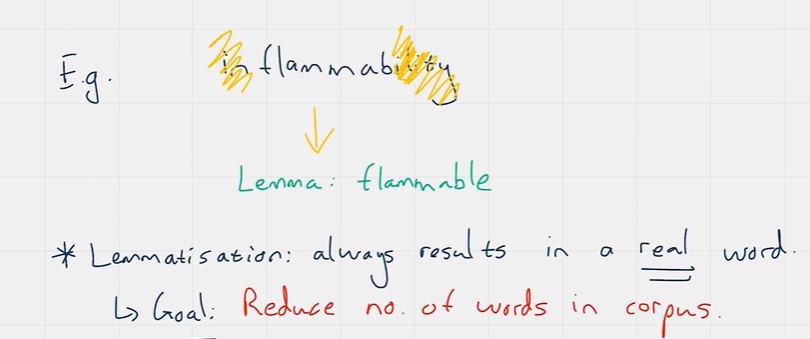 E.g. inflammability
Lemma: flammable
* Lemmatisation: always results in a real word.
↳ Goal: Reduce no. of words in corpus.